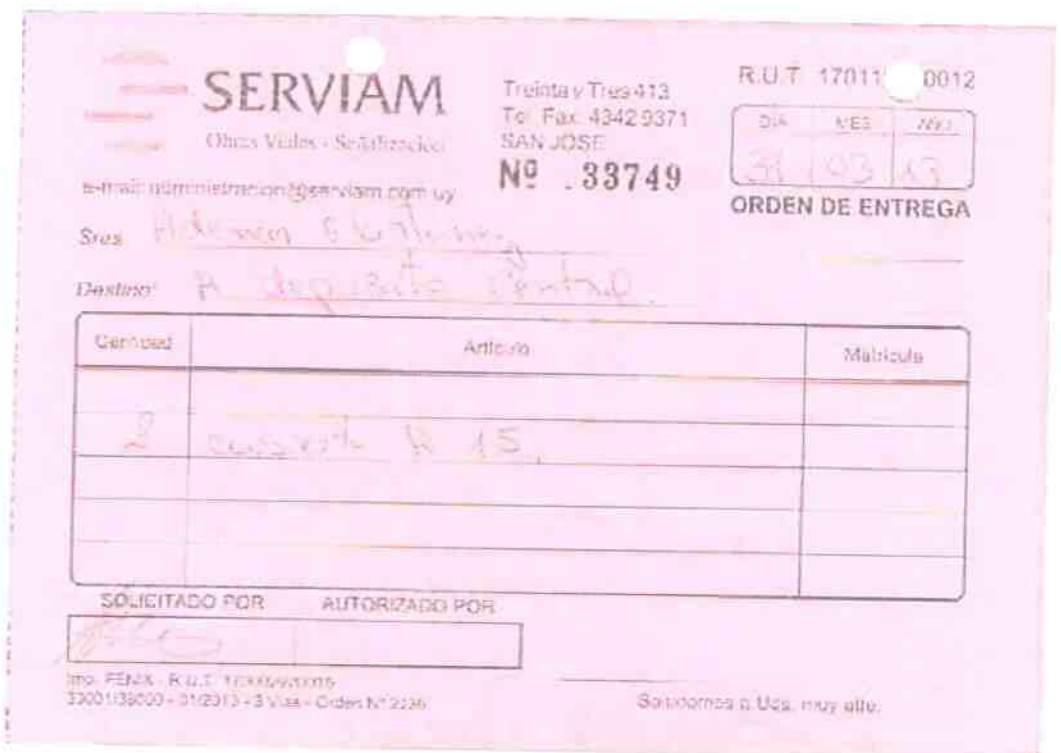 SERVIAM
Obras Viales - Señalización
e-mail: administracion@serviam.com.uy
Treinta y Tres 413
Tel Fax 4342 9371
SAN JOSE
Nº .33749
R.U.T 17011 0012
DIA MES AÑO
31 03 17
ORDEN DE ENTREGA
Sres
Destino: A deposito central.
Cantidad Articulo Matricula
2 R 15.
SOLICITADO POR AUTORIZADO POR
Imp. FENIX - R.U.T.
01/2013 - 3 Vias - Orden Nº
Saludamos a Uds. muy atte.